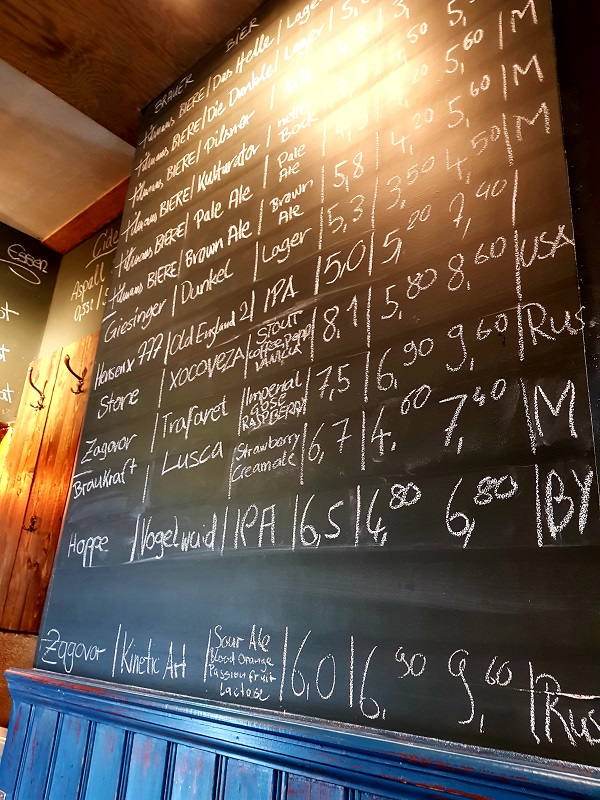 BRAUER BIER
Tilmans BIERE / Das Helle / Lager 5,
Tilmans BIERE / Die Dunkle / Lager 5,60 | M
Tilmans BIERE / Pilsner 50 5,60 | M
Tilmans BIERE / Kulturator | Helle Bock 4,20 5,60 | M
Tilmans BIERE / Pale Ale | Pale Ale | 5,8 | 3,50 4,50
Tilmans BIERE / Brown Ale | Brown Ale | 5,3
Giesinger | Dunkel | Lager | 5,0 | 5,20 7,40 |
Hensenx 777 | Old England 2 | IPA | 8,1 | 5,80 8,60 | USA
Stone | XOCOVEZA | STOUT COFFEE PEPP VANILLA | 7,5 | 6,90 9,60 | Rus
Zagovor | Trafaret | Imperial GOSE RASPBERRY | 6,7 | 4,60 7,40 | M
BrauKraft | Lusca | Strawberry Creamale
Hoppe | Vogelwuid | IPA | 6,5 | 4,80 6,80 | BY
Zagovor | Kinetic Art | Sour Ale Blood Orange Passionfruit Lactose | 6,0 | 6,90 9,60 | Rus
Essen
Cide
Aspall
0,33l /